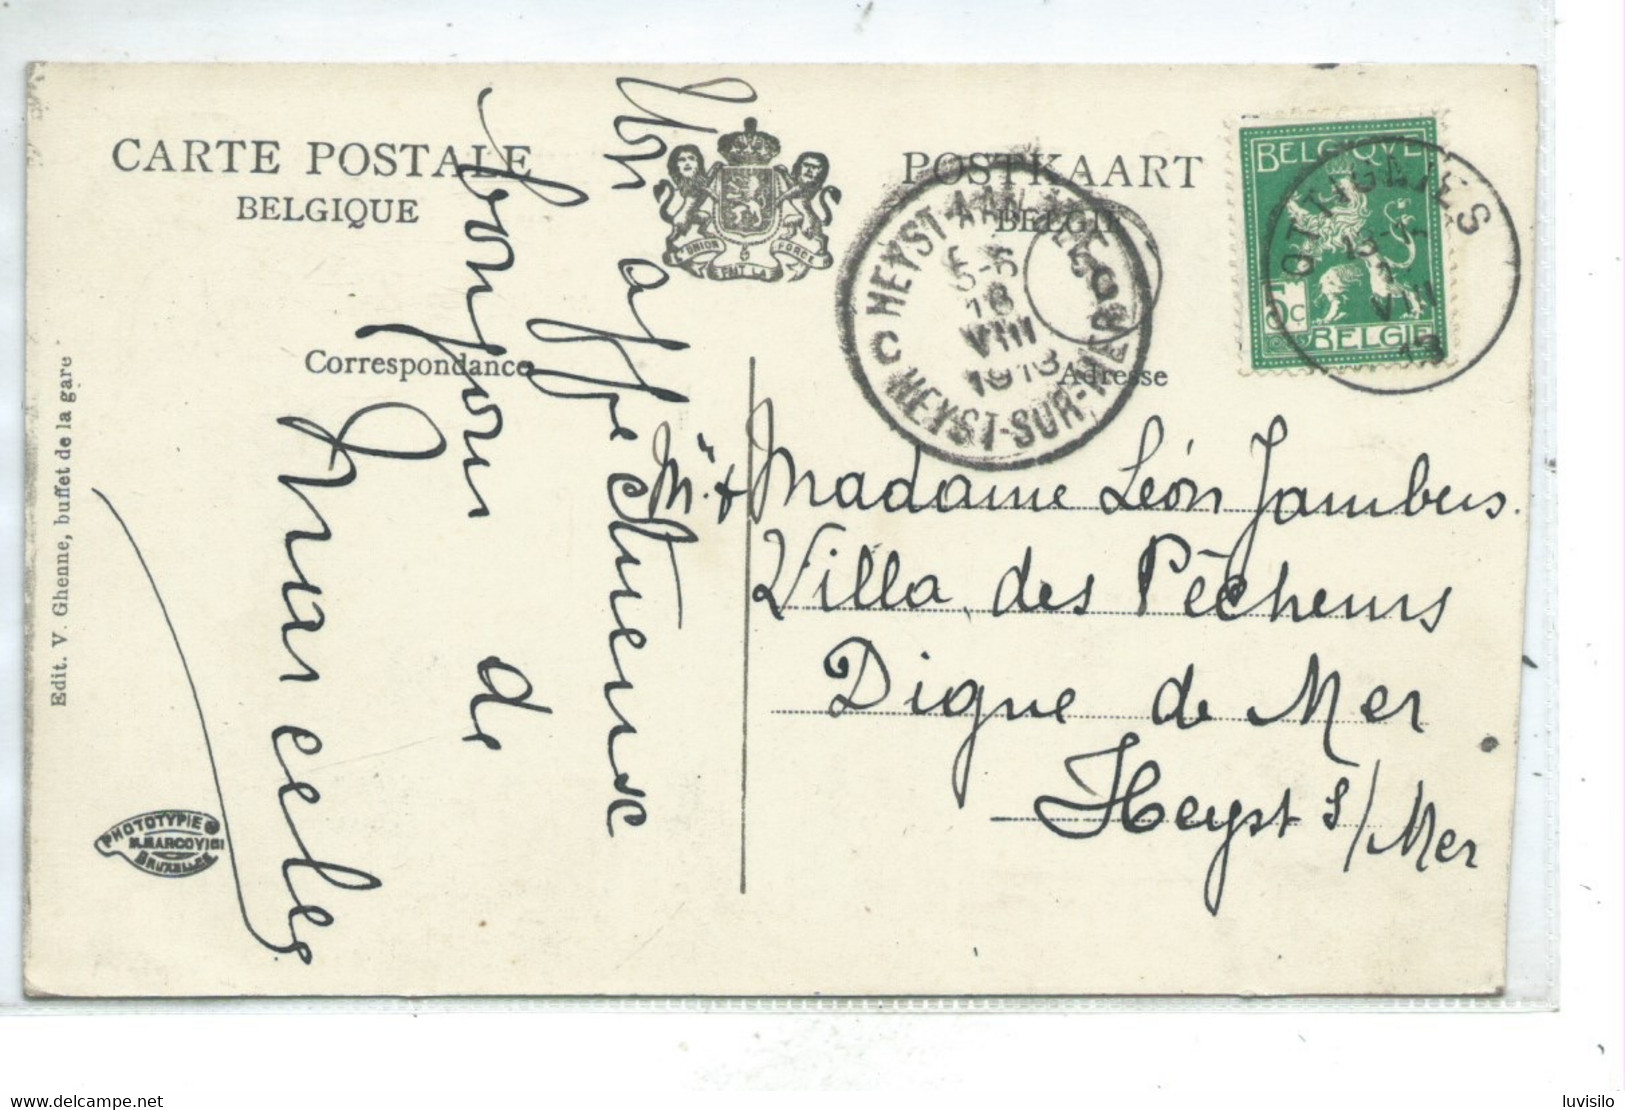 CARTE POSTALE
BELGIQUE
POSTKAART
BELGIE
L'UNION FAIT LA FORCE
Correspondance
Adresse
BELGIQUE
5c
BELGIE
OTTIGNIES
VIII
13
HEYST-AAN-ZEE
5-6
18
VIII
1913
HEYST-SUR-MER
C
Un affectueux
bonjour de
Marcelle
Mr. & Madame Léon Jambers.
Villa des Pêcheurs
Digue de Mer
Heyst s/Mer
Edit. V. Ghenne, buffet de la gare
PHOTOTYPIE
M. MARCOVICI
BRUXELLES
https://www.delcampe.net
luvisilo